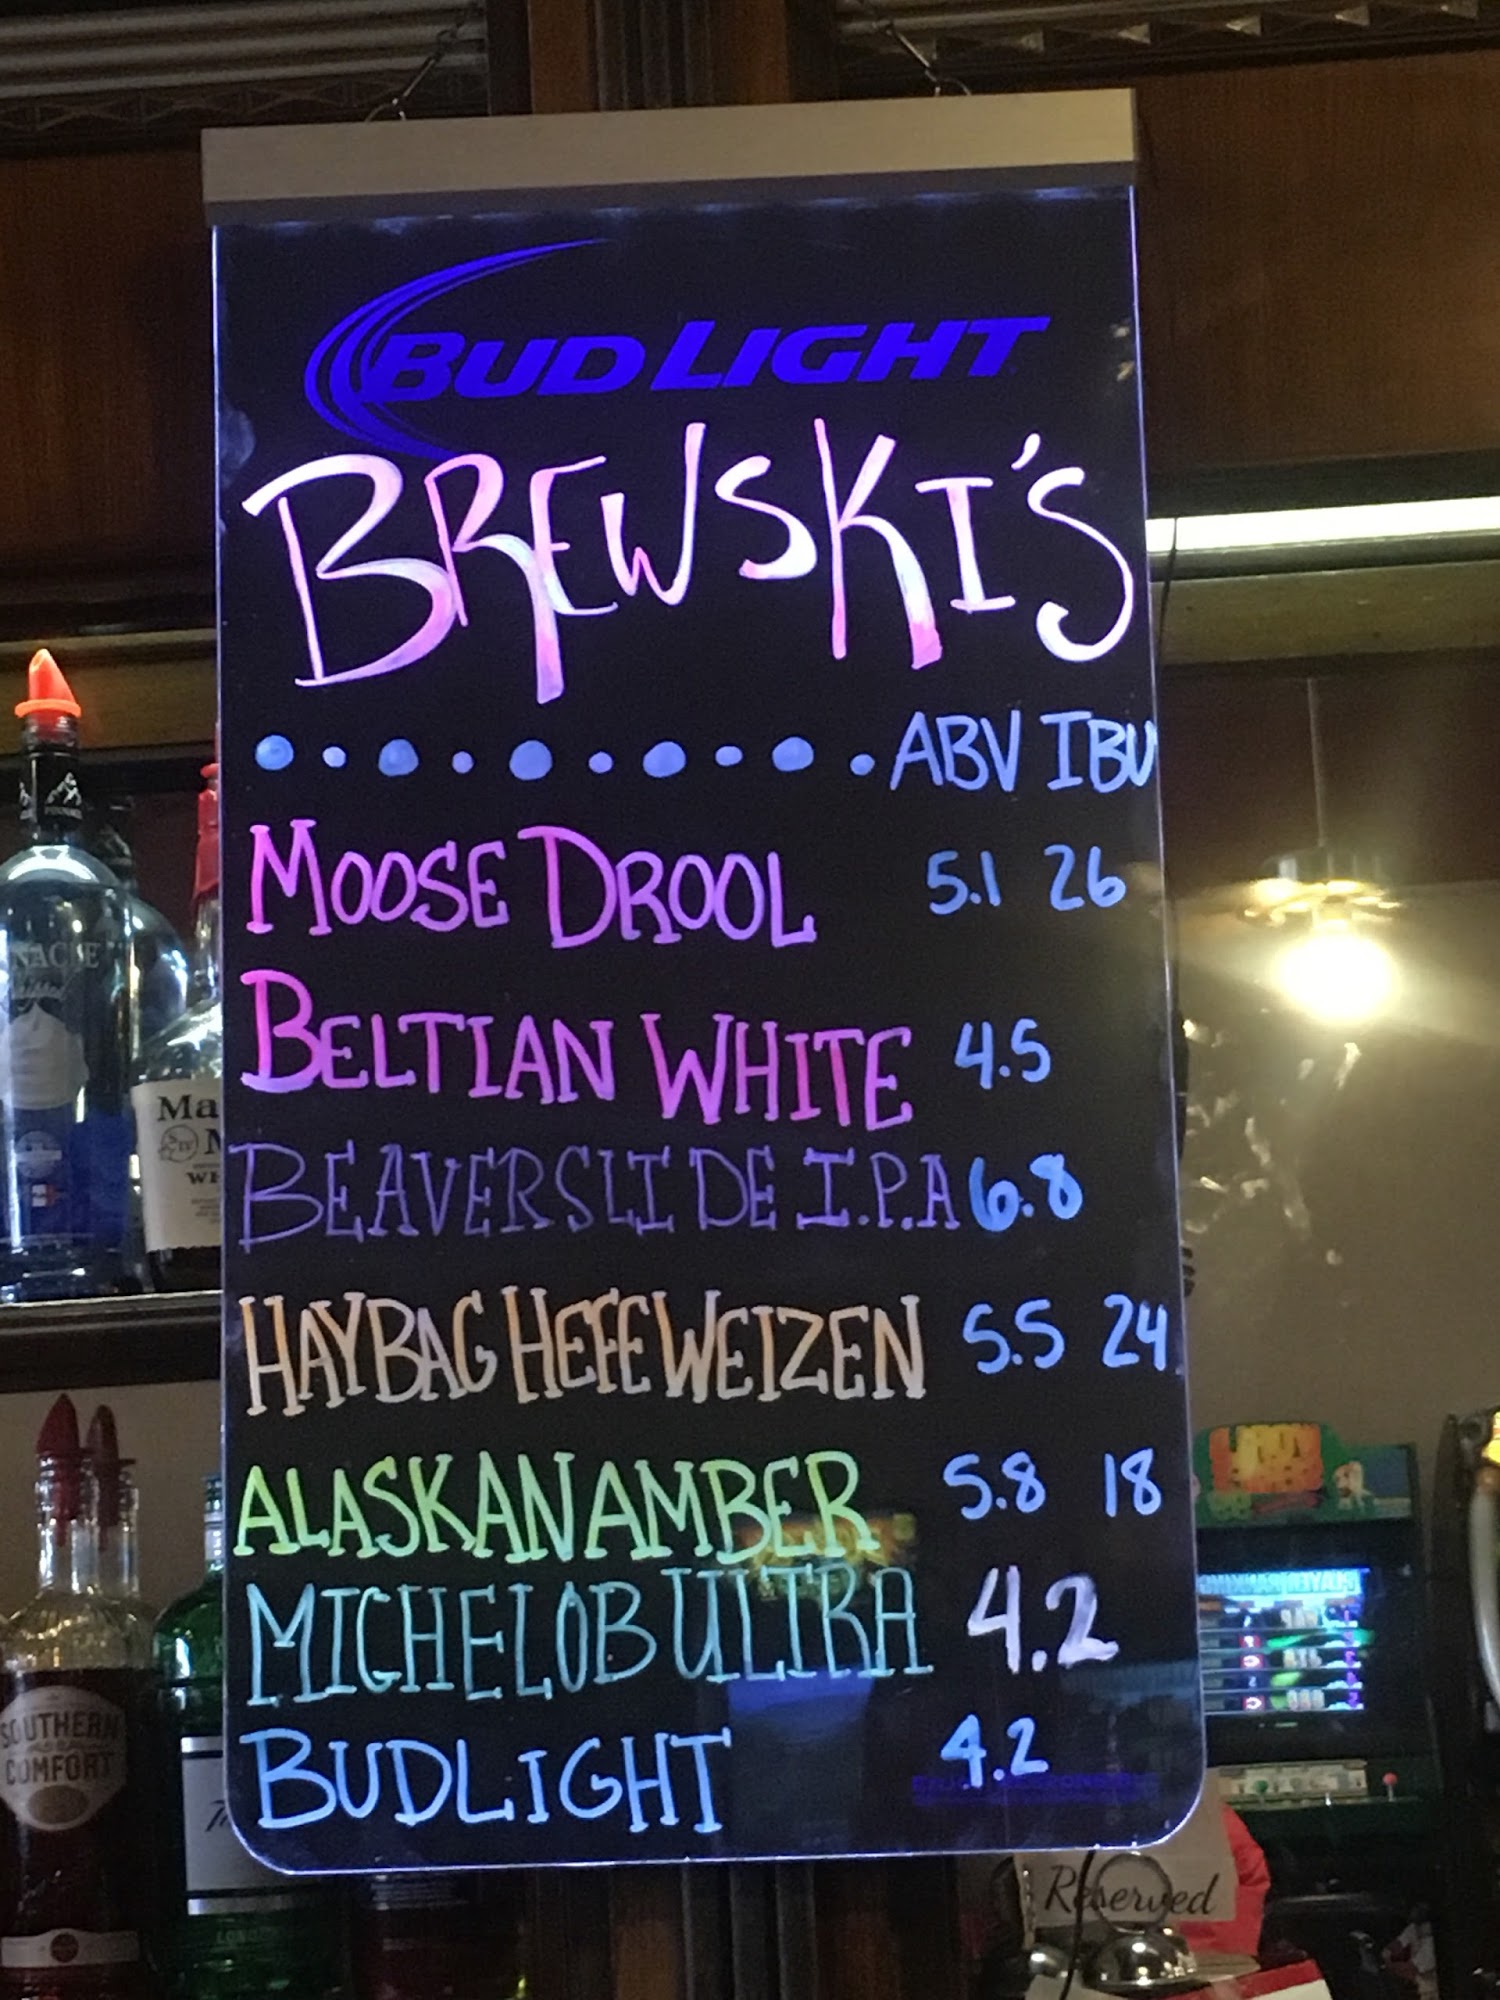 BUD LIGHT
BREWSKI'S
ABV IBU
MOOSE DROOL 5.1 26
BELTIAN WHITE 4.5
BEAVERSLIDE I.P.A 6.8
HAYBAG HEFEWEIZEN 5.5 24
ALASKAN AMBER 5.8 18
MICHELOB ULTRA 4.2
BUDLIGHT 4.2
Ma
SOUTHERN
COMFORT
LONDON
Reserved